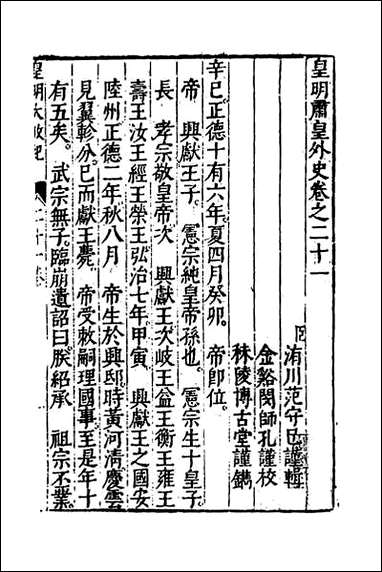 皇明肅皇外史卷之二十一
洧川范守己謹輯
金谿閔師孔謹校
秣陵博古堂謹鐫
辛巳正德十有六年夏四月癸卯。 帝即位。
帝 興獻王子。 憲宗純皇帝孫也。 憲宗生十皇子
長 孝宗敬皇帝次 興獻王次岐王益王衡王雍王
壽王汝王經王榮王弘治七年。甲寅 興獻王之國安
陸州正德二年秋八月 帝生於興邸時黃河清慶雲
見翼軫分。已而獻王薨。 帝受敕嗣理國事至是年十
有五矣。 武宗無子。臨崩遺詔曰。朕紹承 祖宗丕業。
皇明大政記
二十一卷